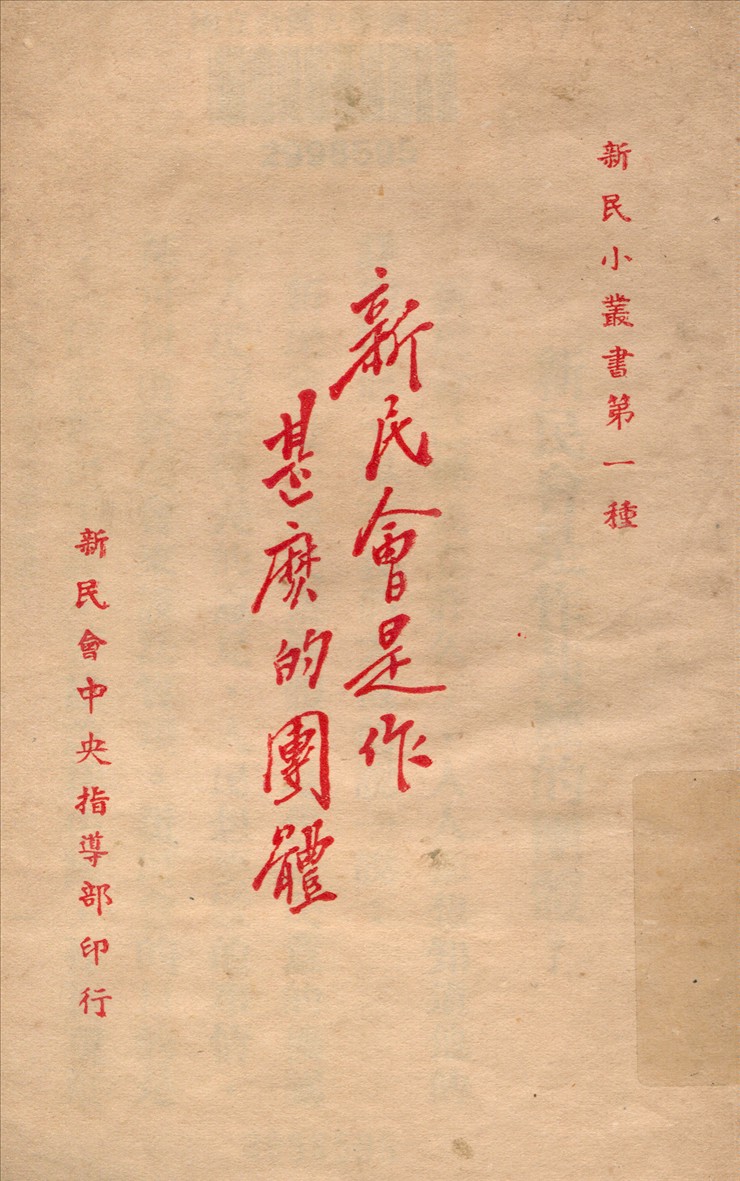 新民小叢書第一種
新民會是作
甚麽的團體
新民會中央指導部印行